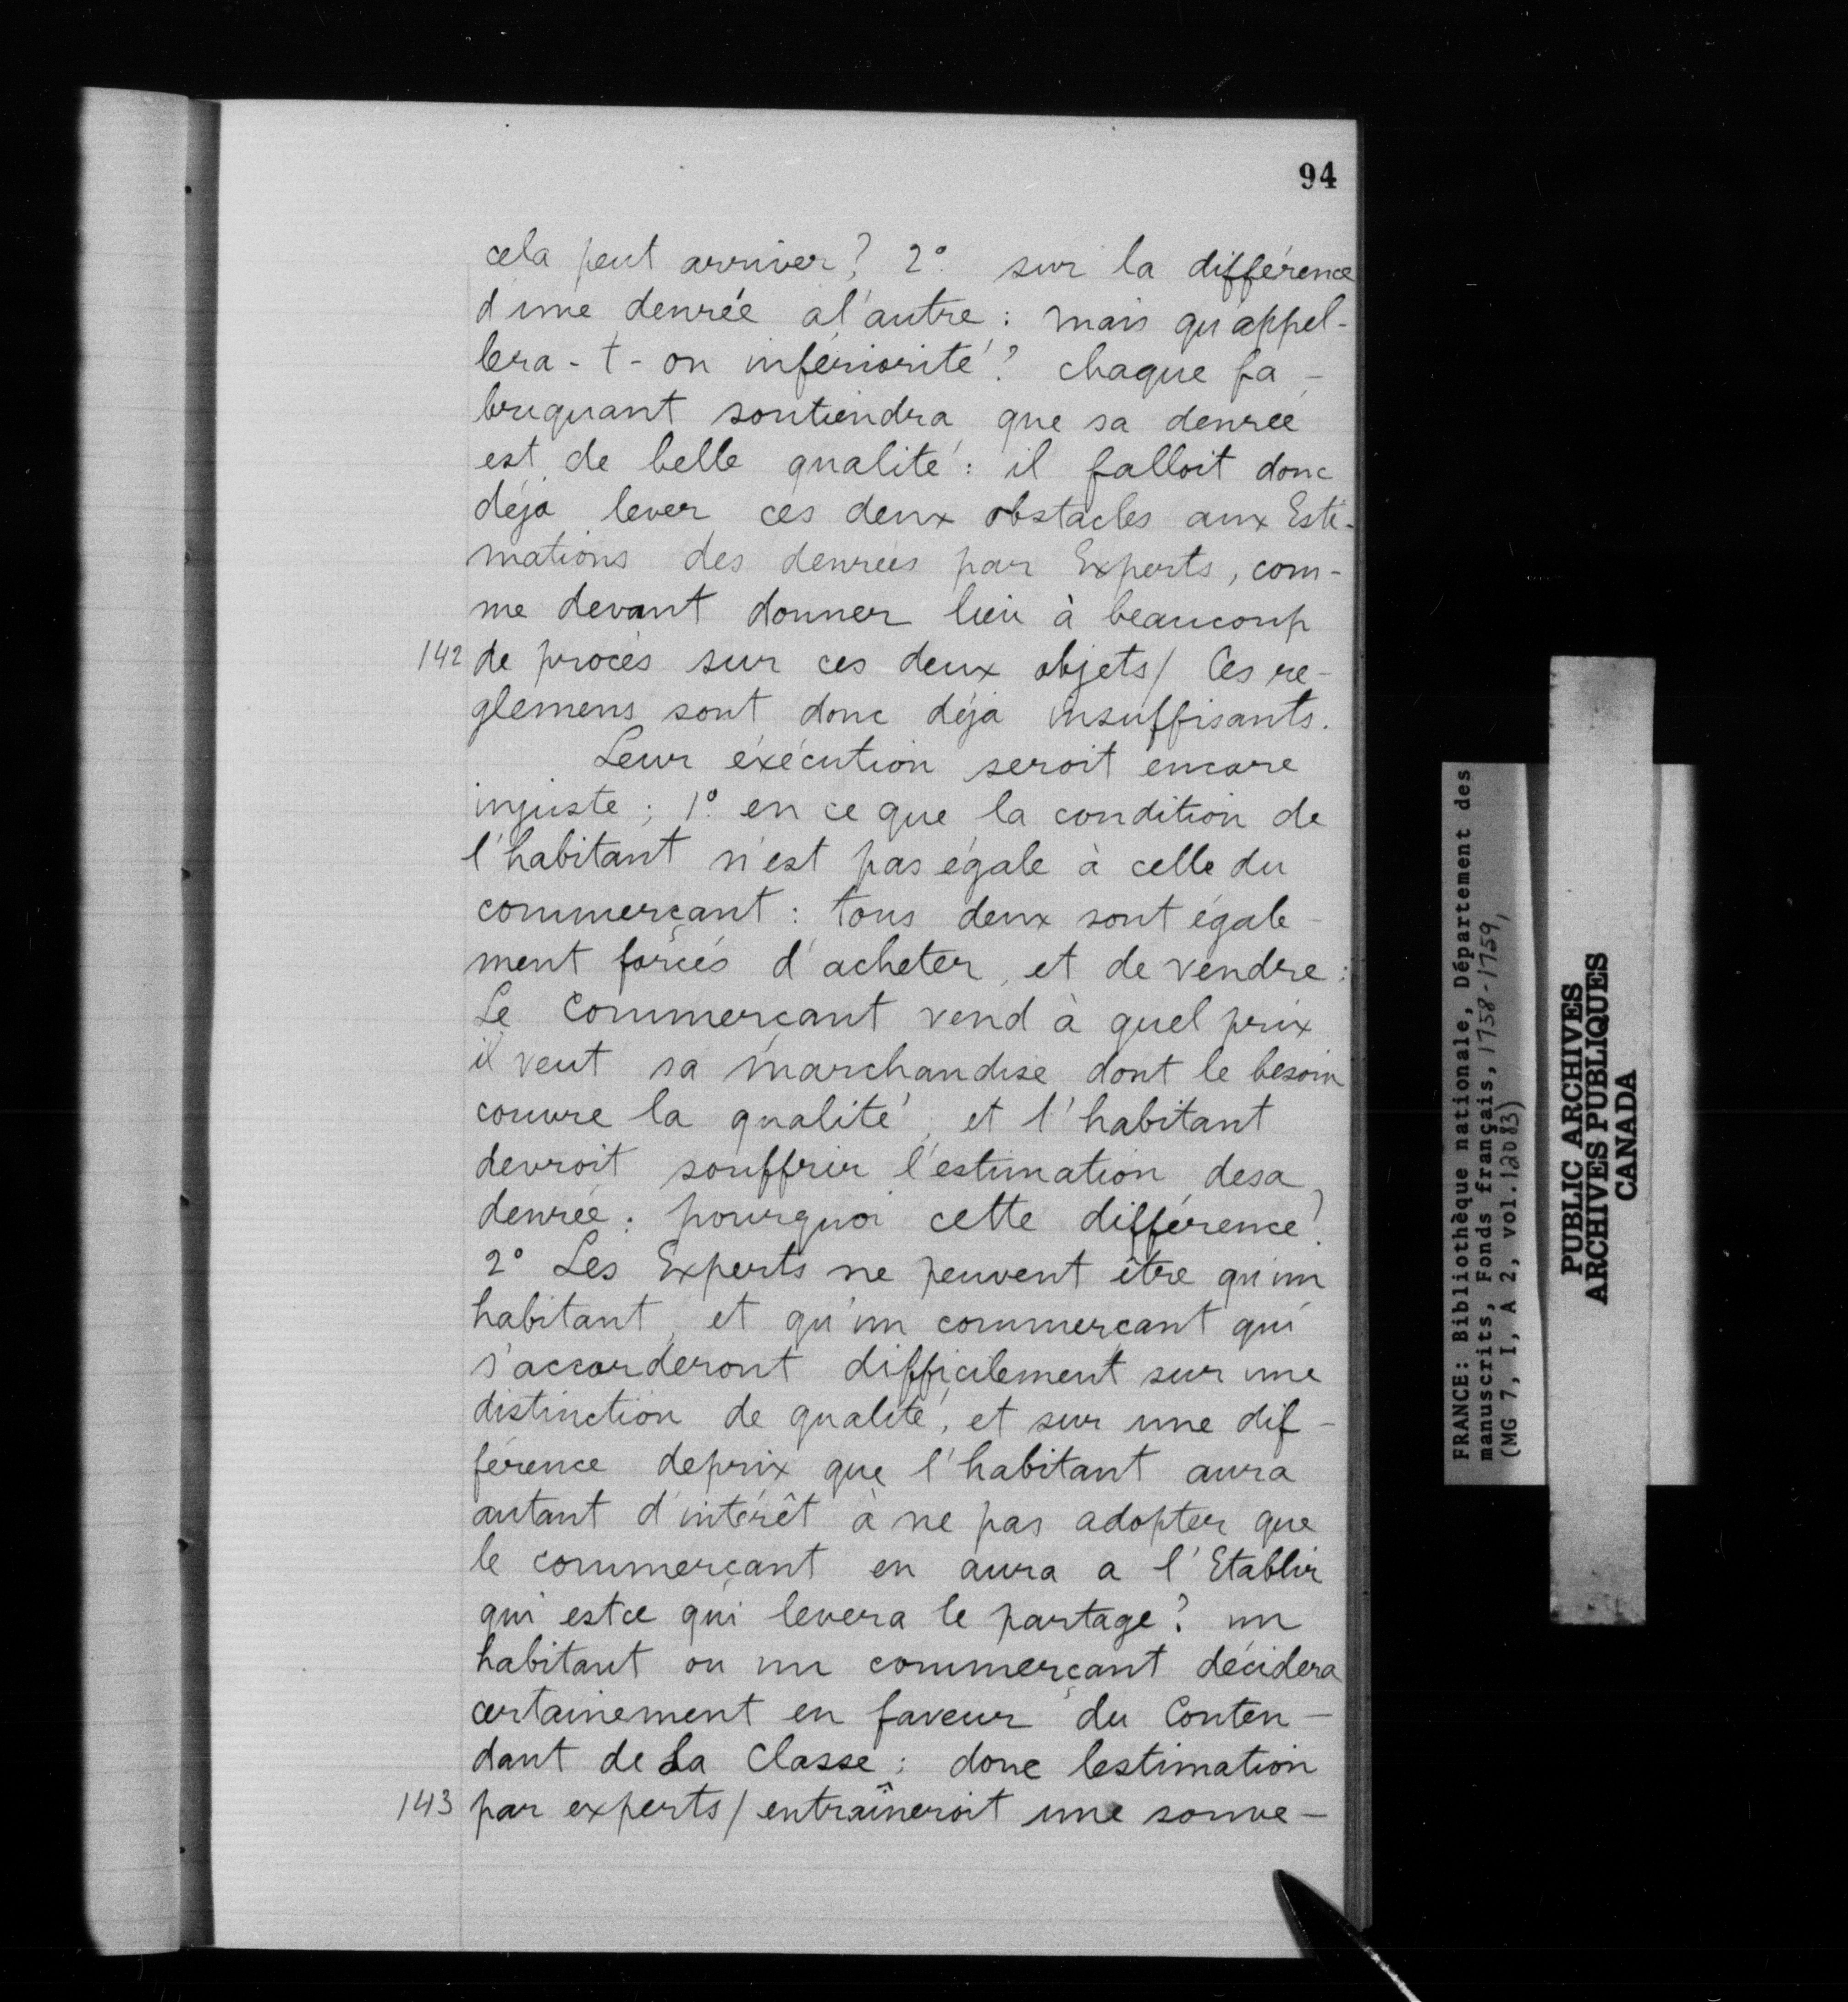 94
cela peut arriver? 2° sur la différence
d'une denrée a l'autre : mais qu'appel-
lera-t-on infériorité? chaque fa-
briquant soutiendra que sa denrée
est de belle qualité : il falloit donc
déja lever ces deux obstacles aux Esti-
mations des denrées par Experts, com-
me devant donner lieu à beaucoup
142 de procès sur ces deux objets/ Ces re-
glemens sont donc déja insuffisants.
Leur éxécution seroit encore
injuste ; 1° en ce que la condition de
l'habitant n'est pas égale à celle du
commerçant : tous deux sont égale-
ment forcés d'acheter, et de vendre :
Le Commerçant vend à quel prix
il veut sa marchandise dont le besoin
couvre la qualité, et l'habitant
devroit souffrir l'estimation desa
denrée : pourquoi cette différence?
2° Les Experts ne peuvent être qu'un
habitant, et qu'un commerçant qui
s'accorderont difficilement sur une
distinction de qualité, et sur une dif-
férence deprix que l'habitant aura
autant d'intérêt à ne pas adopter que
le commerçant en aura a l'Etablir
qui estce qui levera le partage? un
habitant ou un commerçant décidera
certainement en faveur du Conten-
dant de La Classe : donc lestimation
143 par experts/ entraîneroit une souve-
FRANCE: Bibliothèque nationale, Département des
manuscrits, Fonds français, 1758-1759,
(MG 7, I, A 2, vol. 12083)
PUBLIC ARCHIVES
ARCHIVES PUBLIQUES
CANADA